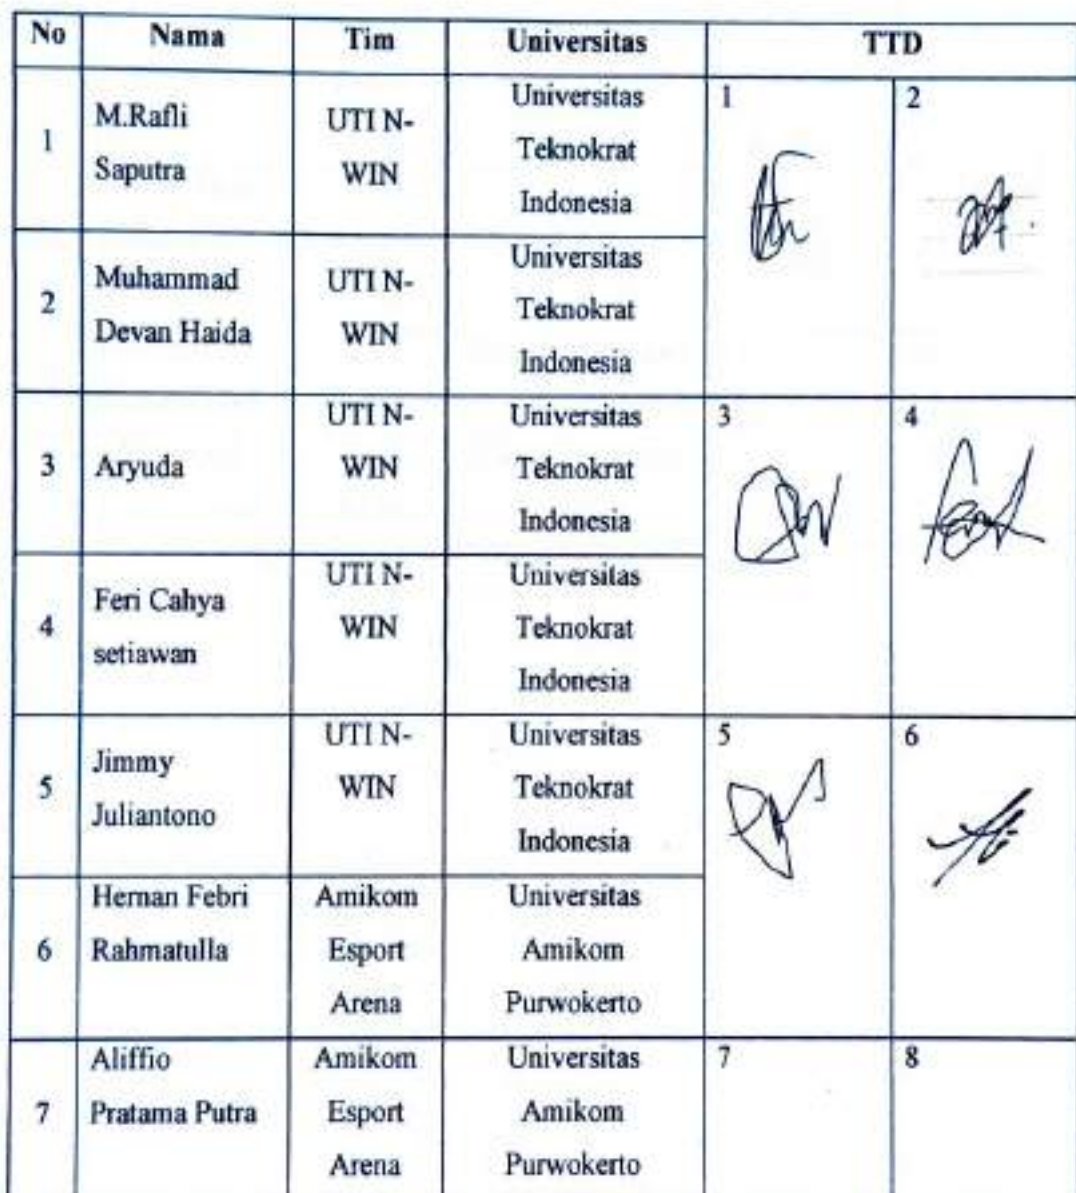 No Nama Tim Universitas TTD
1
M.Rafli
Saputra
UTI N-
WIN
Universitas
Teknokrat
Indonesia
1
2
2
Muhammad
Devan Haida
UTI N-
WIN
Universitas
Teknokrat
Indonesia
3
Aryuda
UTI N-
WIN
Universitas
Teknokrat
Indonesia
3
4
4
Feri Cahya
setiawan
UTI N-
WIN
Universitas
Teknokrat
Indonesia
5
Jimmy
Juliantono
UTI N-
WIN
Universitas
Teknokrat
Indonesia
5
6
6
Hernan Febri
Rahmatulla
Amikom
Esport
Arena
Universitas
Amikom
Purwokerto
7
Aliffio
Pratama Putra
Amikom
Esport
Arena
Universitas
Amikom
Purwokerto
7
8